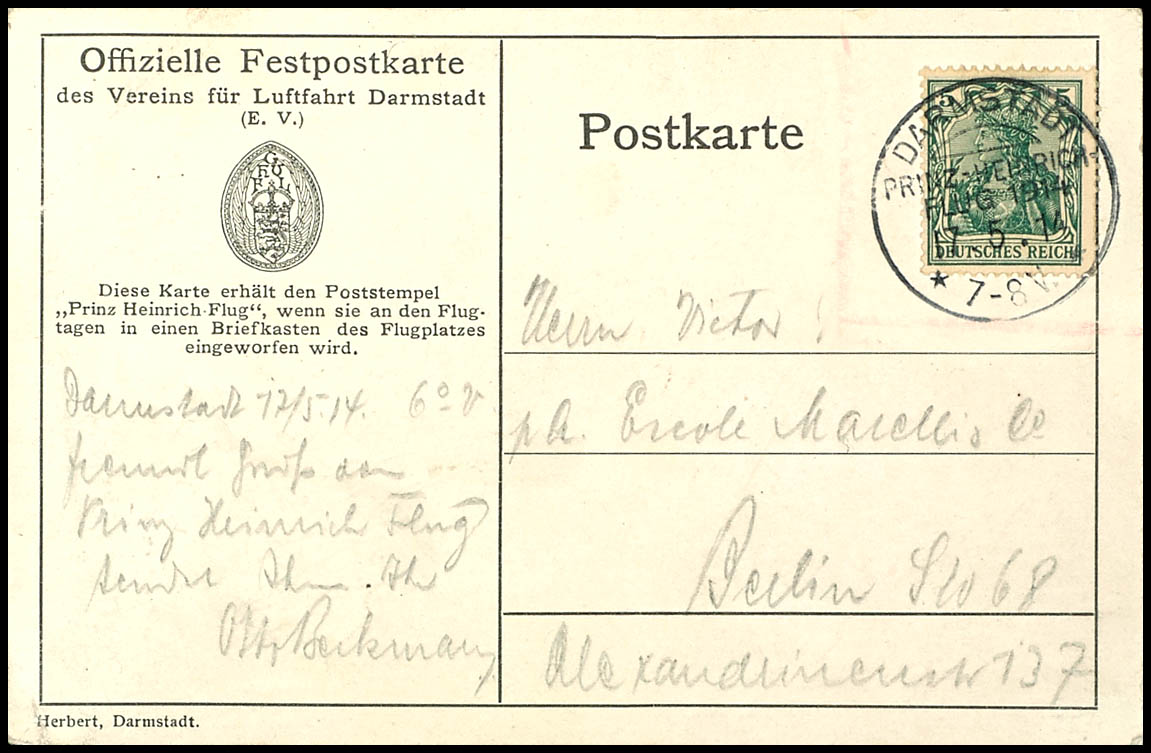 Offizielle Festpostkarte
des Vereins für Luftfahrt Darmstadt
(E. V.)
Diese Karte erhält den Poststempel
„Prinz Heinrich-Flug“, wenn sie an den Flug-
tagen in einen Briefkasten des Flugplatzes
eingeworfen wird.
Darmstadt 17/5.14. 6º V
freundl Gruß vom
Prinz Heinrich Flug
sendet Ihnen Ihr
Otto Beckmann
Herbert, Darmstadt.
Postkarte
5 5
DEUTSCHES REICH
DARMSTADT
PRINZ-HEINRICH-
FLUG 1914
17.5.14
* 7-8 V.
Herrn Victor
p A. Ercole Marelli & Co
Berlin SW 68
Alexandrinenstr 137